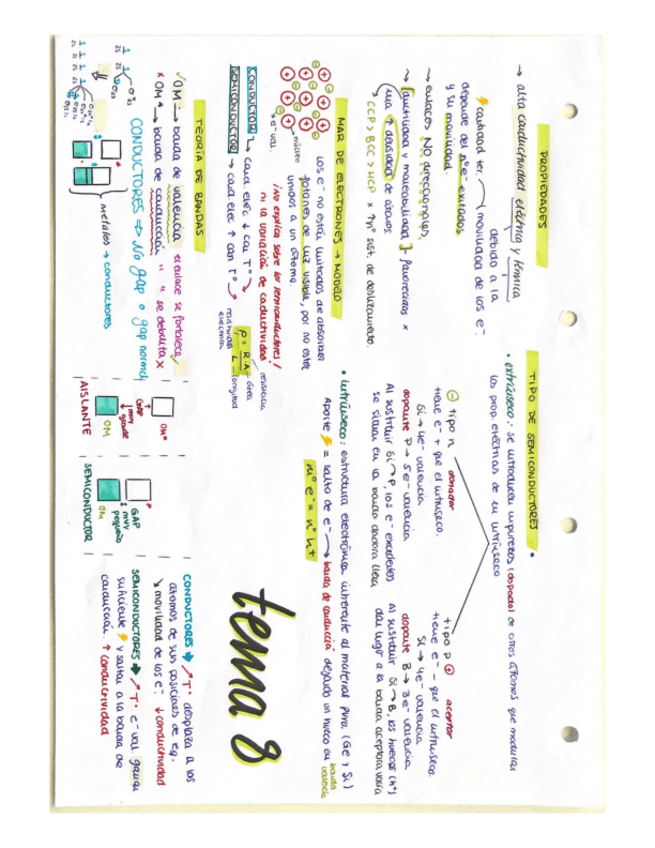 PROPIEDADES
→ alta conductividad eléctrica y térmica
debido a la
⚡ cantidad ter. movilidad de los e⁻.
depende del nº e⁻ excitados
y su movilidad.
→ enlaces NO direccionales,
→ ductilidad y maleabilidad ]- Favorecidas x
una ↑ densidad de átomos
CCP > BCC > HCP x nº sist. de deslizamiento.
MAR DE ELECTRONES → MODELO
los e⁻ no están limitados de absorber
fotones de luz visible, por no estar
unidos a un átomo.
núcleo
e⁻ val.
¡No explica sobre los semiconductores!
ni la variación de conductividad!
CONDUCTOR ↳ cond eléc ↓ con Tº
SEMICONDUCTOR → cond eléc ↑ con Tº
resistividad eléctrica
ρ = R·A / L
resistencia
área
longitud
TEORÍA DE BANDAS
✓ OM → banda de valencia el enlace se fortalece
x OM* → banda de conducción " " se debilita x
CONDUCTORES ⇒ No gap o gap normal
metales → conductores
AISLANTE
GAP
muy grande
OM*
OM
SEMICONDUCTOR
GAP
muy pequeño
OM
TIPO DE SEMICONDUCTORES
• extrínseco: se introducen impurezas (dopado) de otros átomos que modifican
las prop. eléctricas de un intrínseco
⊖ tipo n donador
tiene e⁻ + que el intrínseco.
Si → 4e⁻ valencia
dopante P → 5e⁻ valencia
Al sustituir Si → P, los e⁻ excedentes
se sitúan en la banda donora llena
tipo p ⊕ aceptor
tiene e⁻ − que el intrínseco.
Si → 4e⁻ valencia
dopante B → 3e⁻ valencia
Al sustituir Si → B, los huecos (h⁺)
dan lugar a la banda aceptora vacía
• intrínseco: estructura electrónica inherente al material puro. (Ge y Si)
Aporte ⚡ = salto de e⁻ → banda de conducción dejando un hueco en banda valencia
nº e⁻ = nº h⁺
tema 8
CONDUCTORES → ↗Tº desplaza a los
átomos de sus posiciones de eq.
↘ movilidad de los e⁻ ↓ conductividad
SEMICONDUCTORES → ↗Tº e⁻ val. ganan
suficiente ⚡ y saltan a la banda de
conducción. ↑ conductividad